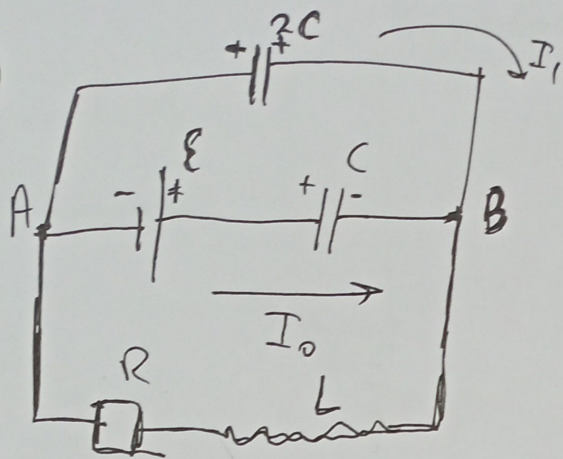 2C
+ +
I₁
ε
C
A
- +
+ -
B
I₀
R
L